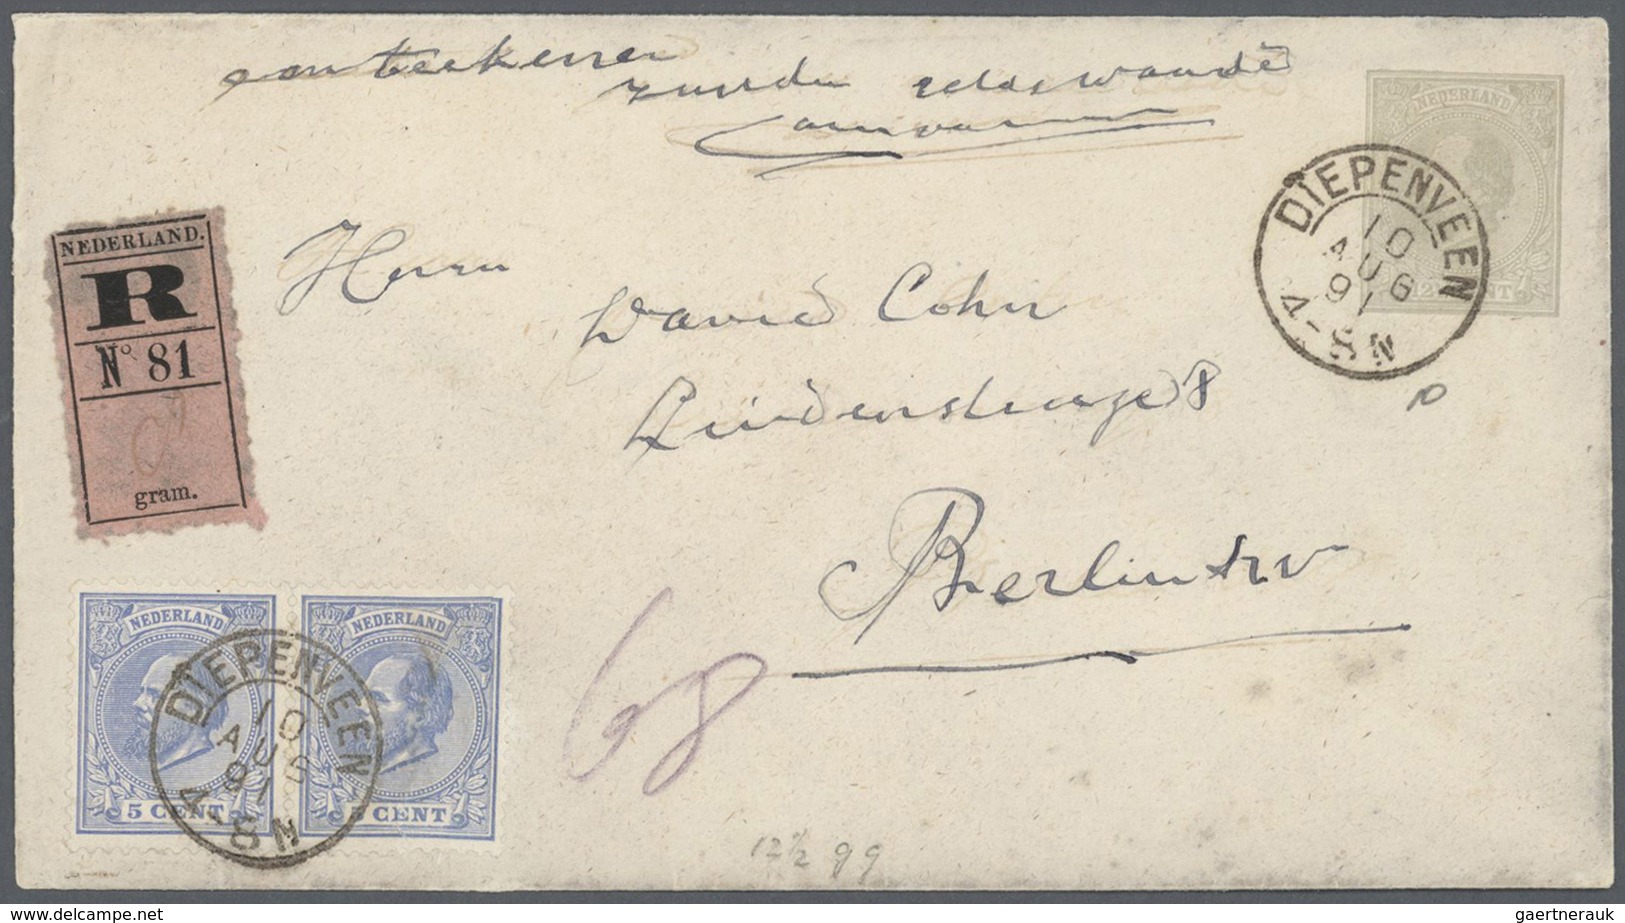 aanteekenen
zonder geldswaarde
NEDERLAND
12½ CENT
DIEPENVEEN
10
AUG
91
4-8N
NEDERLAND.
R
No 81
gram.
Herrn
David Cohn
Lindenstrasse 8
Berlin
NEDERLAND
5 CENT
NEDERLAND
5 CENT
DIEPENVEEN
10
AUG
91
4-8N
68
12½ gg
delcampe.net
gaertnerauk